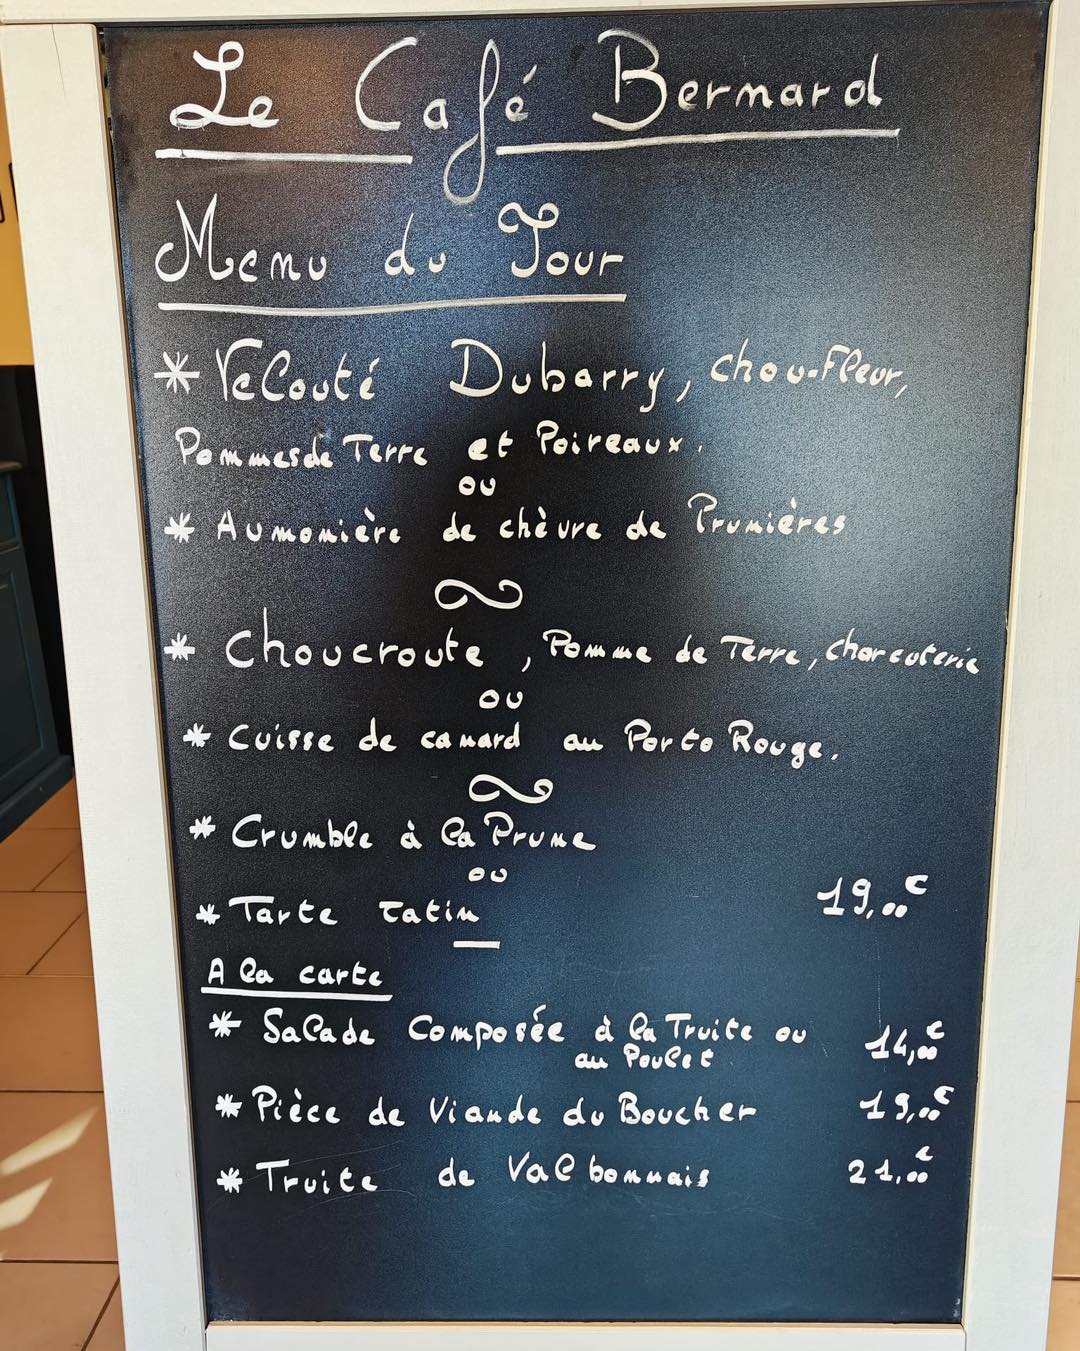 Le Café Bernard
Menu du Jour
* Velouté Dubarry, chou-Fleur,
Pommes de Terre et Poireaux.
ou
* Aumonière de chèvre de Prunières
* Choucroute, Pomme de Terre, charcuterie
ou
* Cuisse de canard au Porto Rouge.
* Crumble à la Prune
ou
* Tarte Tatin 19,00€
A la carte
* Salade Composée à la Truite ou 14,00€
au Poulet
* Pièce de Viande du Boucher 19,00€
* Truite de Valbonnais 21,00€